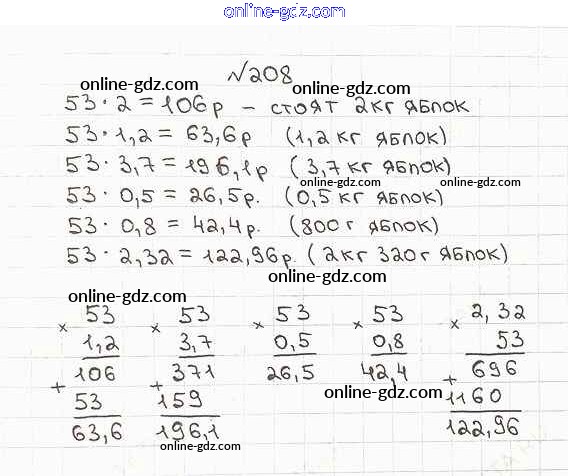 online-gdz.com
№208
online-gdz.com online-gdz.com
53 · 2 = 106р – стоят 2кг яблок
53 · 1,2 = 63,6р (1,2кг яблок)
53 · 3,7 = 196,1р (3,7кг яблок)
online-gdz.com online-gdz.com
53 · 0,5 = 26,5р. (0,5кг яблок)
53 · 0,8 = 42,4р. (800г яблок)
53 · 2,32 = 122,96р. (2кг 320г яблок)
online-gdz.com online-gdz.com
× 53 × 53 × 53 × 53 × 2,32
1,2 3,7 0,5 0,8 53
106 371 26,5 42,4 696
+ + +
online-gdz.com
53 159 1160
63,6 196,1 122,96
online-gdz.com